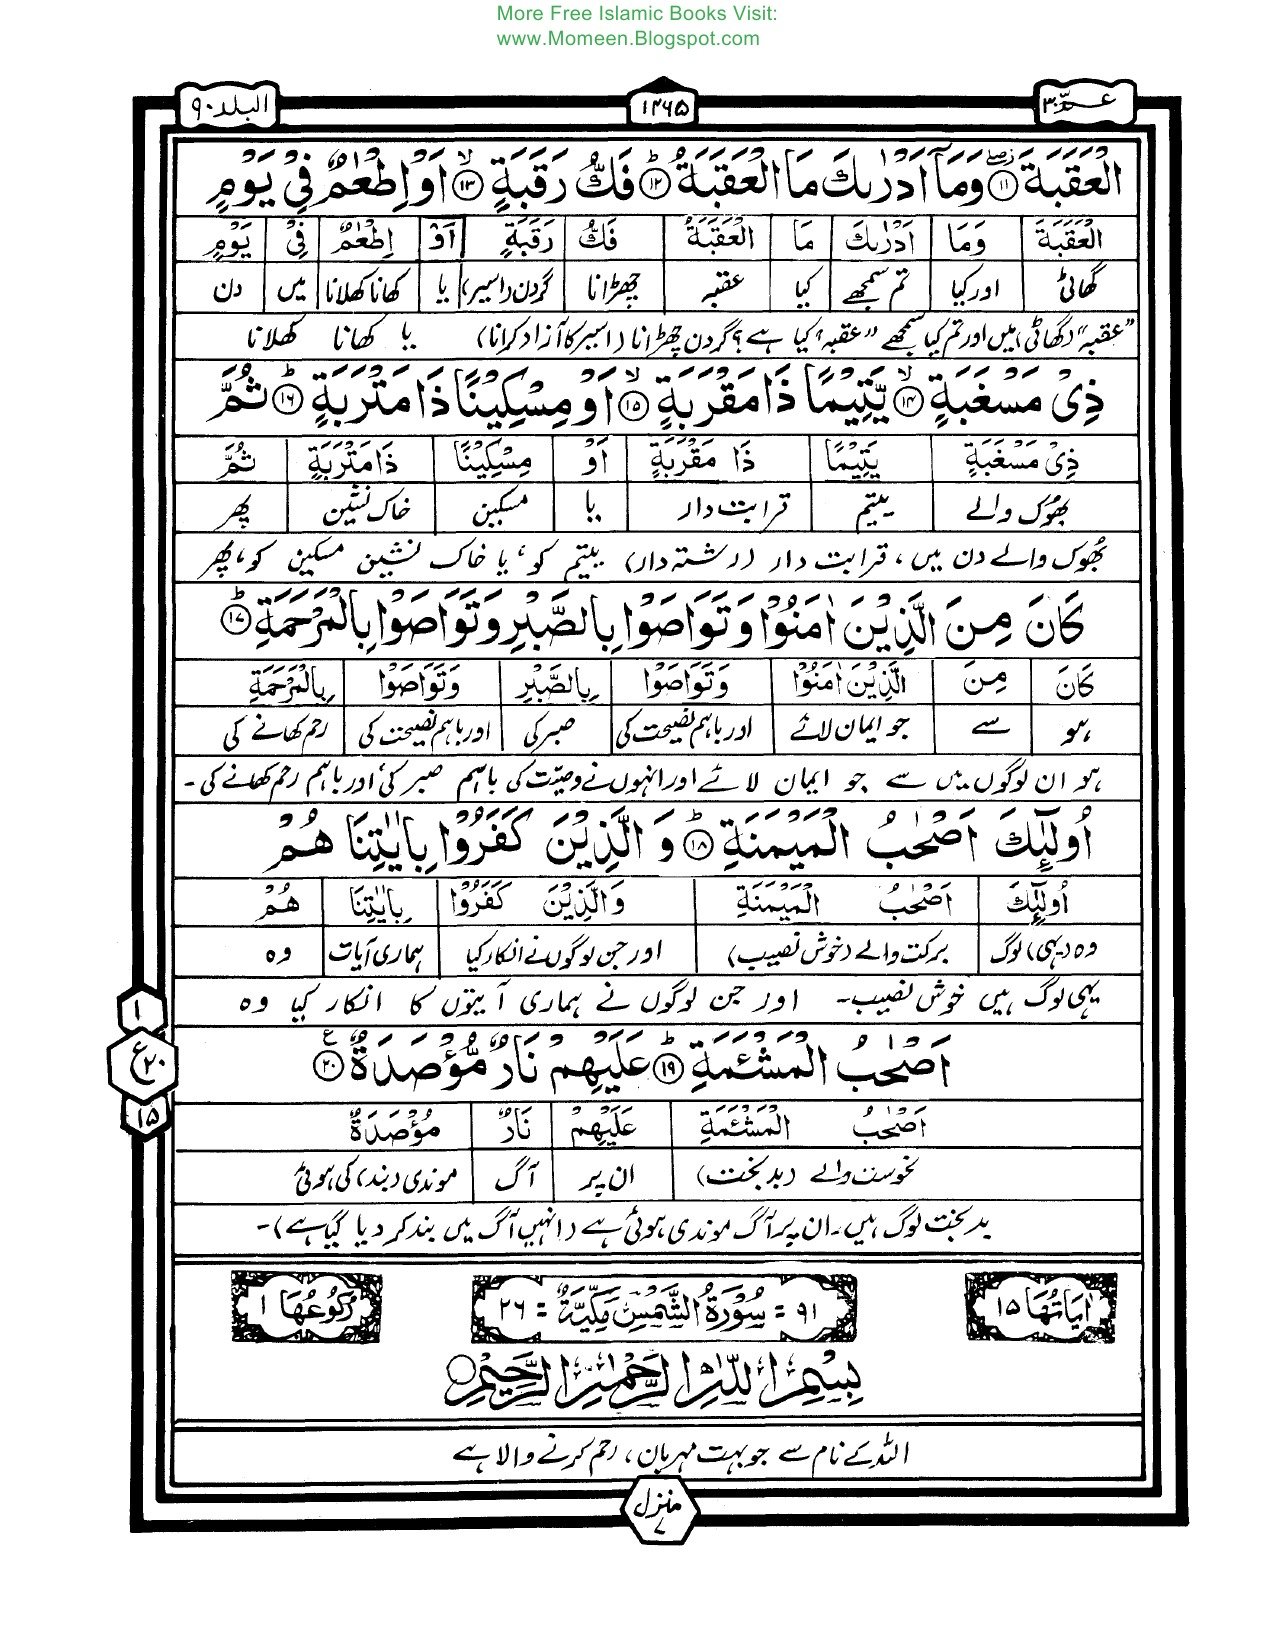 More Free Islamic Books Visit:
www.Momeen.Blogspot.com
عـــمّ ۳۰
۱۴۶۵
البلد ۹۰
الْعَقَبَةَ ۱۱ وَمَآ اَدْرٰىكَ مَا الْعَقَبَةُ ۱۲ فَكُّ رَقَبَةٍ ۱۳ اَوْ اِطْعٰمٌ فِيْ يَوْمٍ
الْعَقَبَةَ وَمَا اَدْرٰىكَ مَا الْعَقَبَةُ فَكُّ رَقَبَةٍ اَوْ اِطْعٰمٌ فِيْ يَوْمٍ
گھاٹی اور کیا تم سمجھے کیا عقبہ چھڑانا گردن (اسیر) یا کھانا کھلانا میں دن
”عقبہ“ (گھاٹی) میں اور تم کیا سمجھے ”عقبہ“ کیا ہے؟ گردن چھڑانا (اسیر کا آزاد کرانا) یا کھانا کھلانا
ذِيْ مَسْغَبَةٍ ۱۴ يَّتِيْمًا ذَا مَقْرَبَةٍ ۱۵ اَوْ مِسْكِيْنًا ذَا مَتْرَبَةٍ ۱۶ ثُمَّ
ذِيْ مَسْغَبَةٍ يَتِيْمًا ذَا مَقْرَبَةٍ اَوْ مِسْكِيْنًا ذَا مَتْرَبَةٍ ثُمَّ
بھوک والے یتیم قرابت دار یا مسکین خاک نشین پھر
بھوک والے دن میں، قرابت دار (رشتہ دار) یتیم کو، یا خاک نشین مسکین کو، پھر
كَانَ مِنَ الَّذِيْنَ اٰمَنُوْا وَتَوَاصَوْا بِالصَّبْرِ وَتَوَاصَوْا بِالْمَرْحَمَةِ ۱۷
كَانَ مِنَ الَّذِيْنَ اٰمَنُوْا وَتَوَاصَوْا بِالصَّبْرِ وَتَوَاصَوْا بِالْمَرْحَمَةِ
ہو سے جو ایمان لائے اور باہم نصیحت کی صبر کی اور باہم نصیحت کی رحم کھانے کی
ہو ان لوگوں میں سے جو ایمان لائے اور انہوں نے وصیّت کی باہم صبر کی، اور باہم رحم کھانے کی۔
اُولٰٓئِكَ اَصْحٰبُ الْمَيْمَنَةِ ۱۸ وَالَّذِيْنَ كَفَرُوْا بِاٰيٰتِنَا هُمْ
اُولٰٓئِكَ اَصْحٰبُ الْمَيْمَنَةِ وَالَّذِيْنَ كَفَرُوْا بِاٰيٰتِنَا هُمْ
وہ (یہی) لوگ برکت والے (خوش نصیب) اور جن لوگوں نے انکار کیا ہماری آیات وہ
یہی لوگ ہیں خوش نصیب۔ اور جن لوگوں نے ہماری آیتوں کا انکار کیا وہ
اَصْحٰبُ الْمَشْئَمَةِ ۱۹ عَلَيْهِمْ نَارٌ مُّؤْصَدَةٌ ۲۰
۱
ع ۲۰
۱۵
اَصْحٰبُ الْمَشْئَمَةِ عَلَيْهِمْ نَارٌ مُؤْصَدَةٌ
نحوست والے (بدبخت) ان پر آگ موندی (بند) کی ہوئی
بدبخت لوگ ہیں۔ ان پر آگ موندی ہوئی ہے (انہیں آگ میں بند کر دیا گیا ہے)۔
اٰيَاتُهَا ۱۵
۹۱ = سُوْرَةُ الشَّمْسِ مَكِّيَّةٌ = ۲۶
رُكُوْعُهَا ۱
بِسْمِ اللّٰهِ الرَّحْمٰنِ الرَّحِيْمِ
اللہ کے نام سے جو بہت مہربان، رحم کرنے والا ہے
منزل ۷